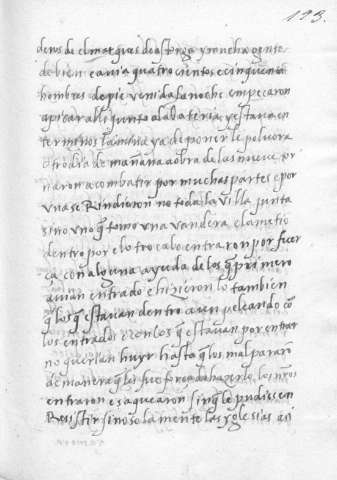 193.
deros de el marques de astorga y mucha gente
de bien e avia quatro cientos e cinquenta
hombres de pie venida la noche empeçaron
a picar alli junto a la bateria y estava en
terminos la mina ya de poner le polvora
otro dia de mañana a obra de las nueve tor
naron a combatir por muchas partes e por
una se Rindieron no toda la villa junta
sino uno q̃ tomo una vandera e la metio
dentro por el otro cabo entraron por fuer
ça con alguna ayuda de los q̃ primero
avian entrado e hizieron lo tambien
q̃ los q̃ estavan dentro aun peleando cõ
los entrados e con los q̃ estavan por entrar
no querian huyr hasta q̃ los mal pararõ
de manera q̃ les fue forçado hazerlo, los nr̃os
entraron e saquearon sin q̃ le pudiesen
Resistir sino solamente las yglesias